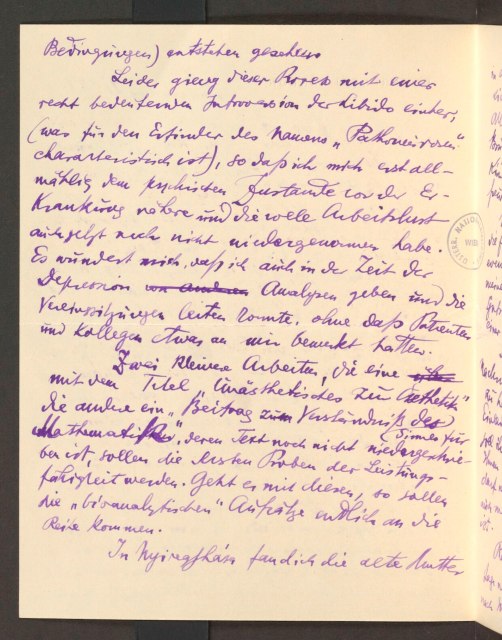 Bedingungen) entstehen gesehen
Leider gieng dieser Prozess mit einer
recht bedeutenden Introversion der Libido einher,
(was für den Erfinder des Namens „Pathoneurosen“
charakteristisch ist), so daß ich mich erst all-
mählig dem psychischen Zustande vor der Er-
krankung nähere und die volle Arbeitslust
auch jetzt noch nicht wiedergewonnen habe.
Es wundert mich, daß ich auch in der Zeit der
Depression von anderen Analysen geben und die
Vereinssitzungen leiten konnte, ohne daß Patienten
und Kollegen etwas an mir bemerkt hatten.
Zwei kleinere Arbeiten, die eine über
mit dem Titel „Unästhetisches zur Ästhetik“
die andre ein „Beitrag zum Verständniß des
(Sinnes für
Mathematik“, deren Text noch nicht niedergeschrie-
ben ist, sollen die ersten Proben der Leistungs-
fähigkeit werden. Geht es mit diesen, so sollen
die „bioanalytischen“ Aufsätze endlich an die
Reihe kommen.
In Nyiregyháza fand ich die alte Mutter